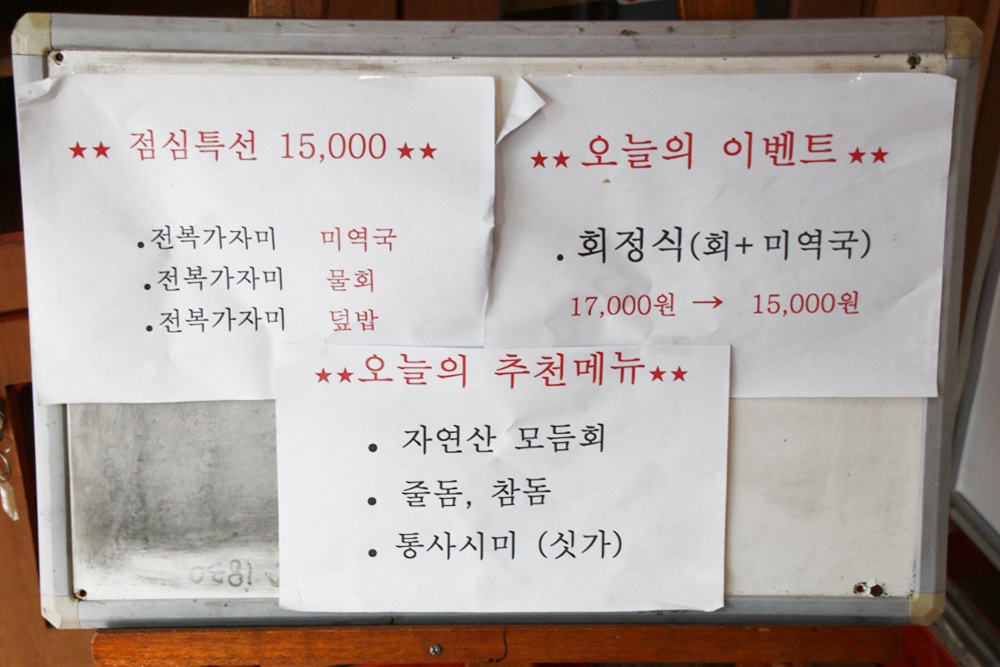 ★★ 점심특선 15,000 ★★
.전복가자미 미역국
.전복가자미 물회
.전복가자미 덮밥
★★ 오늘의 이벤트 ★★
. 회정식(회+ 미역국)
17,000원 → 15,000원
★★오늘의 추천메뉴★★
• 자연산 모듬회
• 줄돔, 참돔
• 통사시미 (싯가)